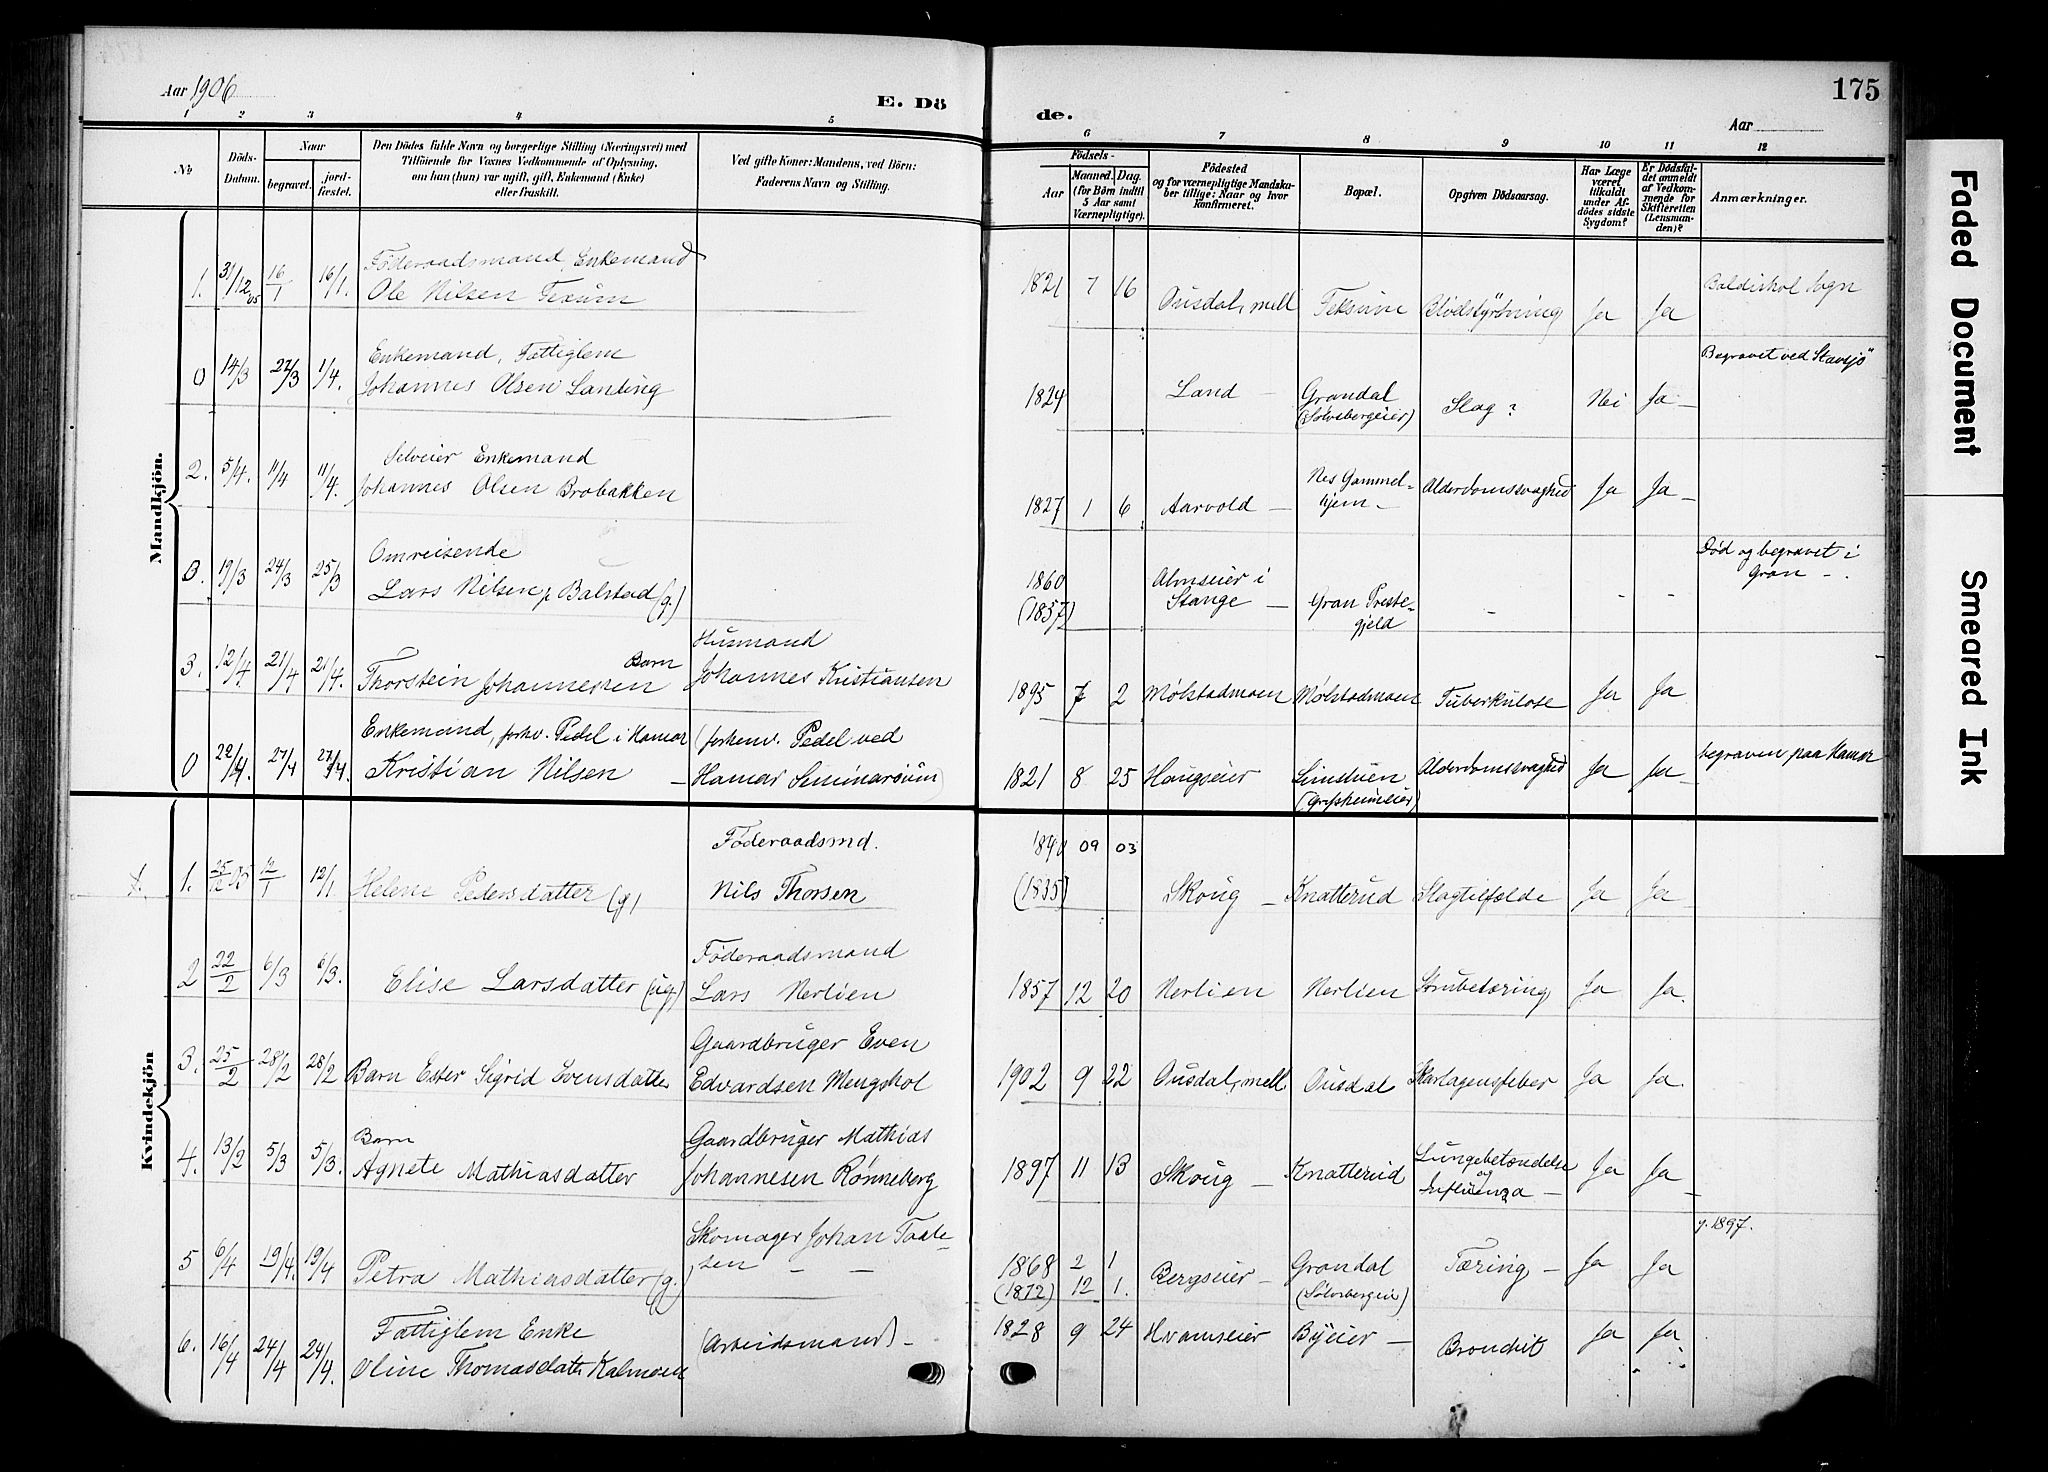 Aar 1906
E. Dö
de.
175
Aar
1 2 3 4 5 6 7 8 9 10 11 12
No
Döds-
Datum.
Naar
begravet.
jord-
fæstet.
Den Dödes fulde Navn og borgerlige Stilling (Næringsvei) med
Tilföiende for Voxnes Vedkommende af Oplysning,
om han (hun) var ugift, gift, Enkemand (Enke)
eller fraskilt.
Ved gifte Koner: Mandens, ved Börn:
Faderens Navn og Stilling.
Födsels-
Aar
Maaned. Dag.
(for Börn indtil
5 Aar samt
Værnepligtige).
Födested
og for værnepligtige Mandska-
ber tillige: Naar og hvor
konfirmeret.
Bopæl.
Opgiven Dödsaarsag.
Har Læge
været
tilkaldt
under Af-
dödes sidste
Sygdom?
Er Dödsfal-
det anmeldt
af Vedkom-
mende for
Skifteretten
(Lensman-
den)?
Anmærkninger.
Mandkjön.
1. 31/12 05 16/1 16/1. Føderaadsmand, Enkemand
Ole Nilsen Texum
1821 7 16 Ousdal, mell Teksum Blodstyrtning Ja Ja Baldishol sogn
0 14/3 27/3 1/4. Enkemand, Fattiglem
Johannes Olsen Landvig
1824 Land – Grøndal
(Sølvsbergeier) Slag? Nei Ja – Begravet ved Stavsjø
2. 5/4. 11/4 11/4. Selveier Enkemand
Johannes Olsen Brobakken
1827 1 6 Aarvold – Nes Gammel-
hjem – Alderdomssvaghed Ja Ja –
0. 19/3 24/3 25/3 Omreisende
Lars Nilsen Balstad (g.)
1860
(1857) Almseier i
Stange – Gran Preste-
gjeld – - - Død og begravet i
Gran –.
3. 12/4 21/4 21/4. Barn
Thorstein Johannessen
Husmand
Johannes Kristiansen
1895 7 2 Mølstadmoen Mølstadmoen Tuberkulose Ja Ja
0 22/4 27/4 27/4. Enkemand, forhv. Pedel i Hamar
Kristian Nilsen –
(forhenv. Pedel ved
Hamar Seminarium)
1821 8 25 Haugseier Limstuen
(Grefsheimeier) Alderdomssvaghed Ja Ja – begraven paa Hamar
Kvindekjön
1. 25/12 05 12/1 12/1 Helene Pedersdatter (g)
Føderaadsmd.
Nils Thorsen
1840 09 03
(1835) Skoug – Knatterud Slagtilfælde Ja Ja
2 22/2 6/3 6/3. Elise Larsdatter (ug.)
Føderaadsmand
Lars Nerlien
1857 12 20 Nerlien Nerlien Ja Ja.
3. 25/2 28/2 28/2 Barn Ester Sigrid Evensdatter
Gaardbruger Even
Edvardsen Mengshol
1902 9 22 Ousdal, mell Ousdal Skarlagensfeber Ja Ja.
4. 13/2 5/3 5/3. Barn
Agnete Mathiasdatter
Gaardbruger Mathias
Johannesen Rønneberg
1897 11 13 Skoug – Knatterud Lungebetændelse
og
Influenza – Ja Ja –
5 6/4 19/4. 19/4 Petra Mathiasdatter (g.)
Skomager Johan Taale-
sen – –
1868 2 1
(1872) 12 1. Bergseier – Grøndal
(Sølvsbergeie) Tæring – Ja Ja g. 1897.
6. 16/4 24/4 24/4. Fattiglem Enke
Oline Thomasdatt. Kalmoen
(Arbeidsmand) –
1828 9 24 Hvamseier Byeier – Bronchit Ja Ja
Faded Document
Smeared Ink